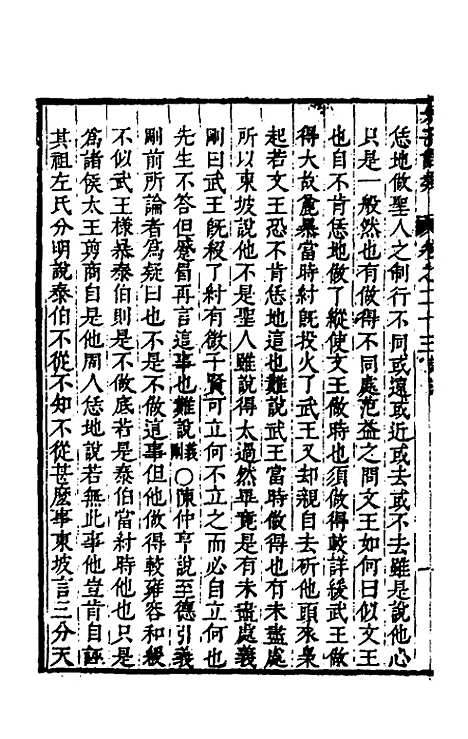 恁地做聖人之制行不同或遠或近或去或不去雖是說他心
只是一般然也有做得不同處范益之問文王如何曰似文王
也自不肯恁地做了縱使文王做時也須做得較詳緩武王做
得大故麄暴當時紂既投火了武王又却親自去斫他頭來梟
起若文王恐不肯恁地這也難說武王當時做得也有未盡處
所以東坡說他不是聖人雖說得太過然畢竟是有未盡處義
剛曰武王既殺了紂有微子賢可立何不立之而必自立何也
先生不答但蹙眉再言這事也難說義剛○陳仲亨說至德引義
剛前所論者為疑曰也不是不做這事但他做得較雍容和緩
不似武王樣暴泰伯則是不做底若是泰伯當紂時他也只是
為諸侯太王剪商自是他周人恁地說若無此事他豈肯自誣
其祖左氏分明說泰伯不從不知不從甚麼事東坡言三分天